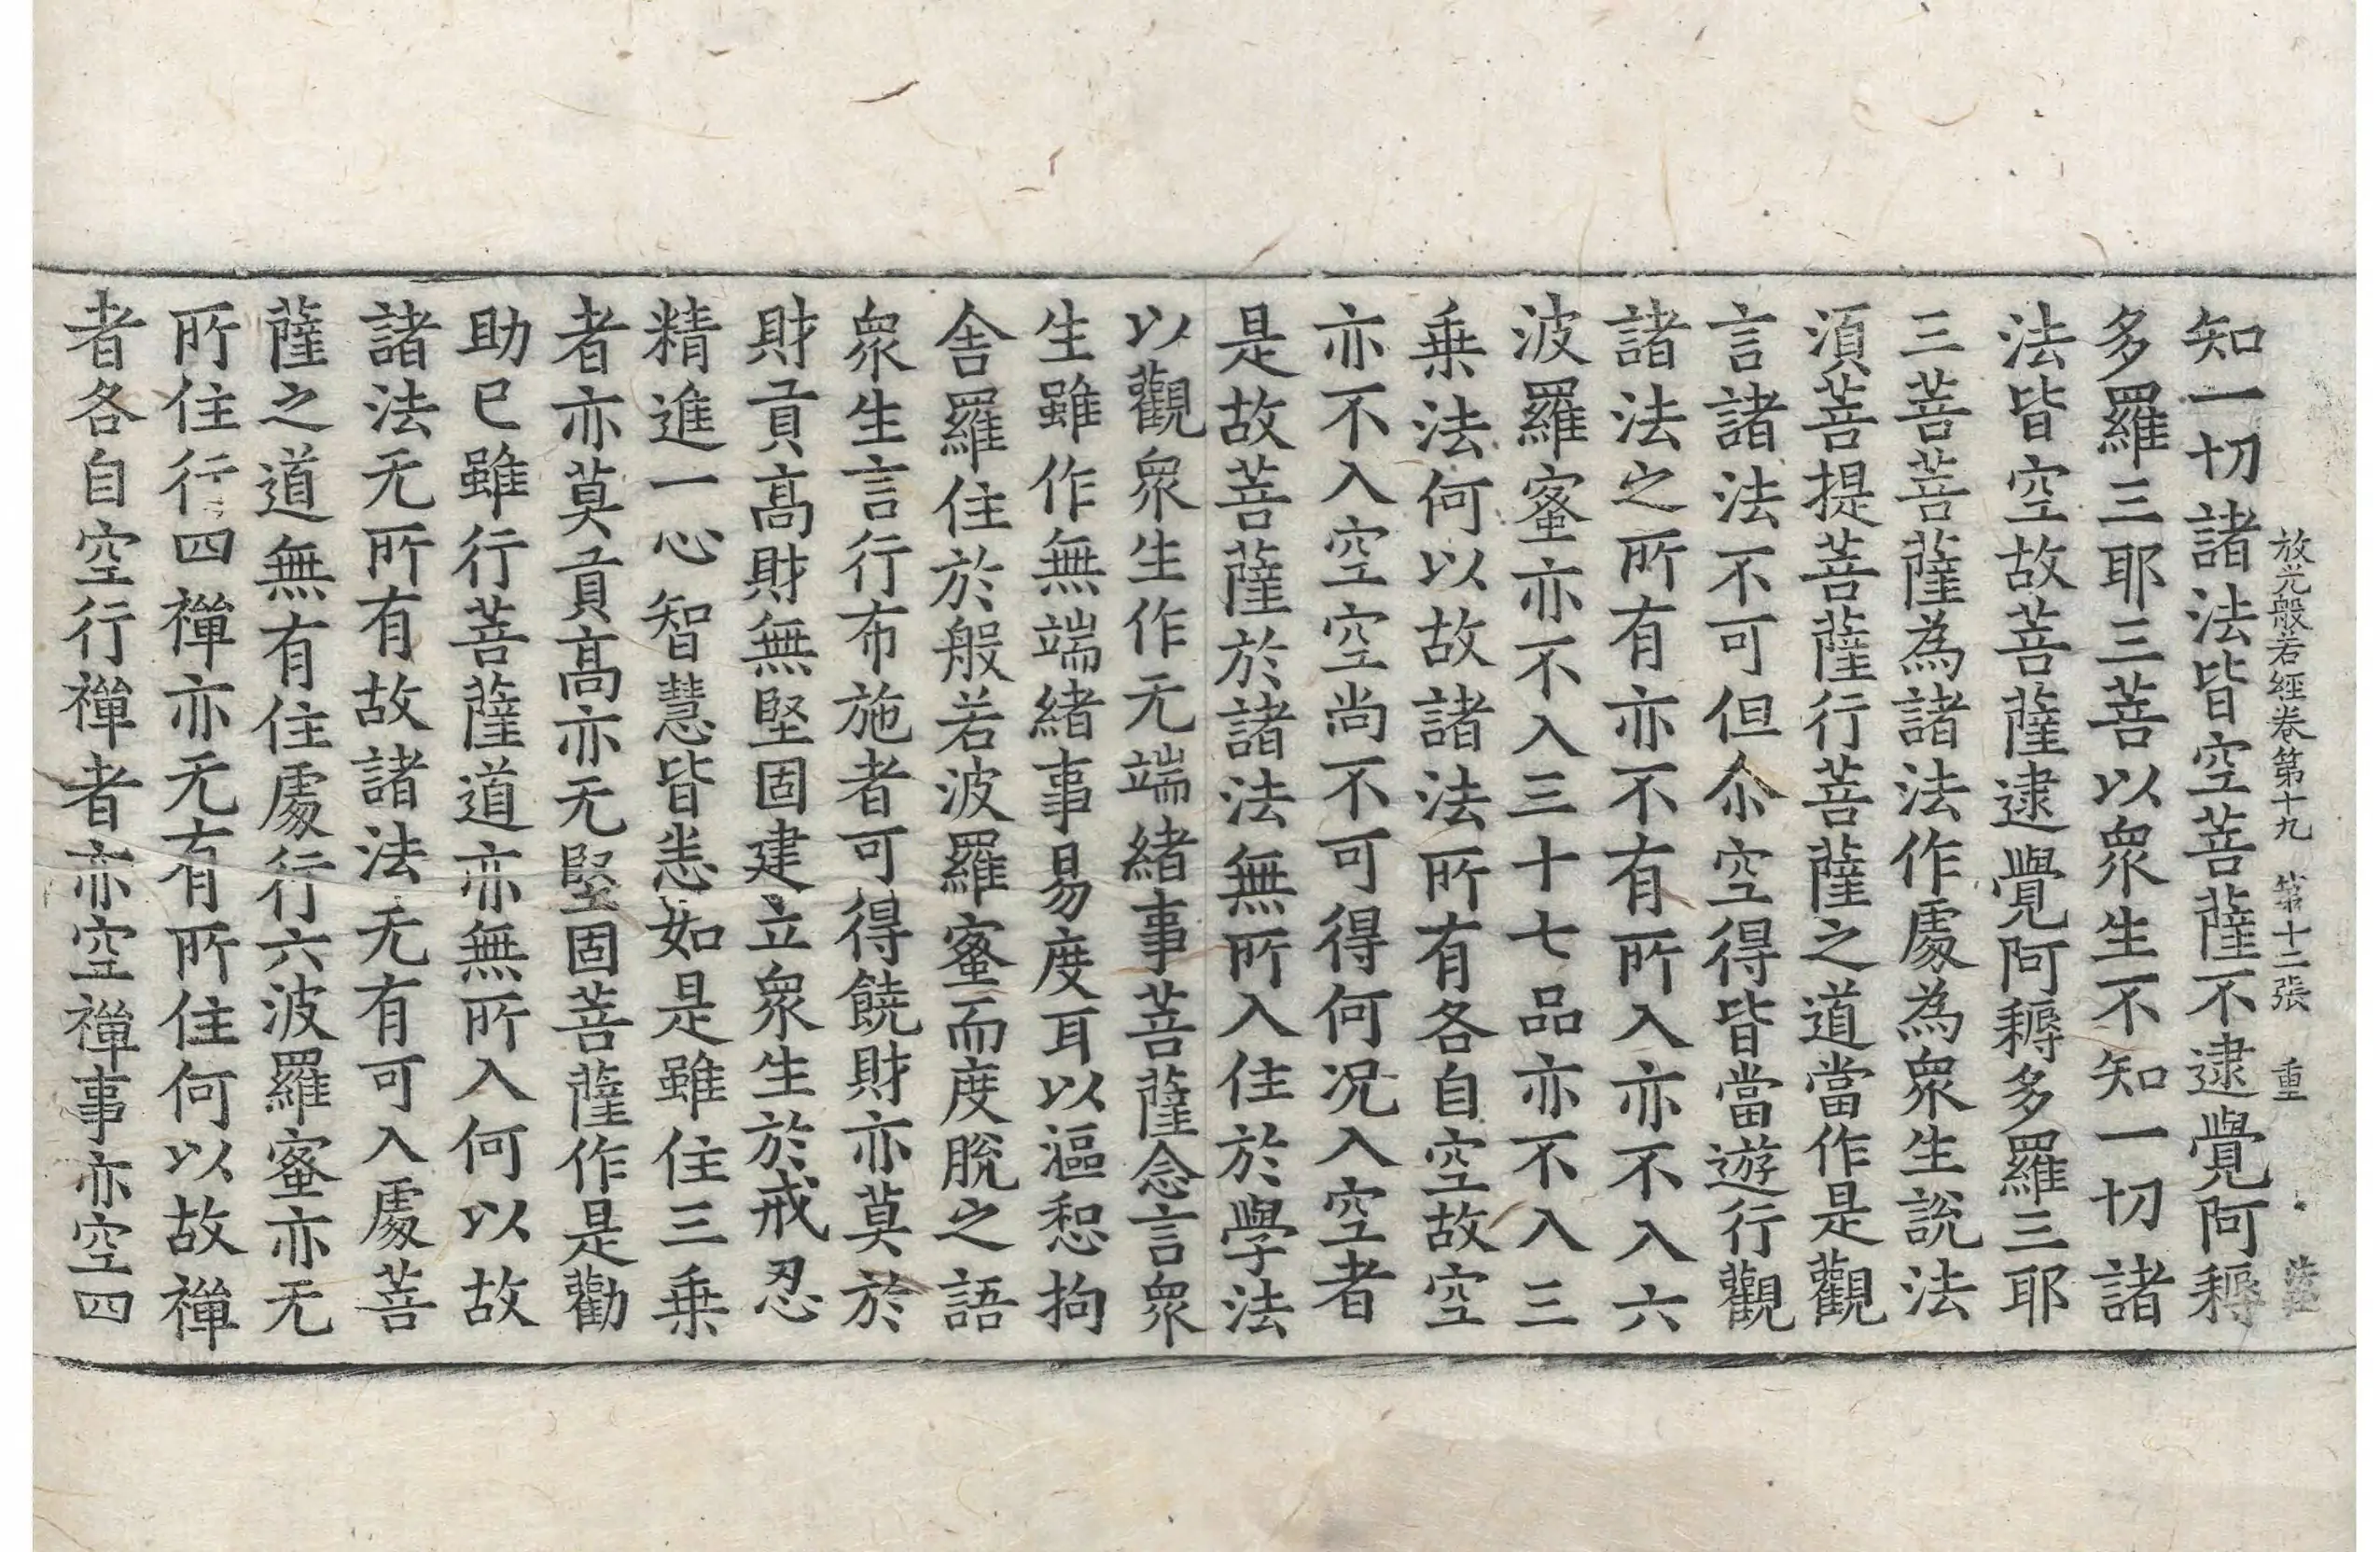 放光般若經卷第十九 第十二張 重
知一切諸法皆空菩薩不逮覺阿耨
多羅三耶三菩以衆生不知一切諸
法皆空故菩薩逮覺阿耨多羅三耶
三菩菩薩為諸法作處為衆生說法
須菩提菩薩行菩薩之道當作是觀
言諸法不可但尒空得皆當遊行觀
諸法之所有亦不有所入亦不入六
波羅蜜亦不入三十七品亦不入三
乗法何以故諸法所有各自空故空
亦不入空空尚不可得何况入空者
是故菩薩於諸法無所入住於學法
以觀衆生作无端緒事菩薩念言衆
生雖作無端緒事易度耳以漚惒拘
舍羅住於般若波羅蜜而度脫之語
衆生言行布施者可得饒財亦莫於
財貢髙財無堅固建立衆生於戒忍
精進一心智慧皆悉如是雖住三乗
者亦莫貢髙亦无堅固菩薩作是勸
助已雖行菩薩道亦無所入何以故
諸法无所有故諸法无有可入處菩
薩之道無有住處行六波羅蜜亦无
所住行四禪亦无有所住何以故禪
者各自空行禪者亦空禪事亦空四